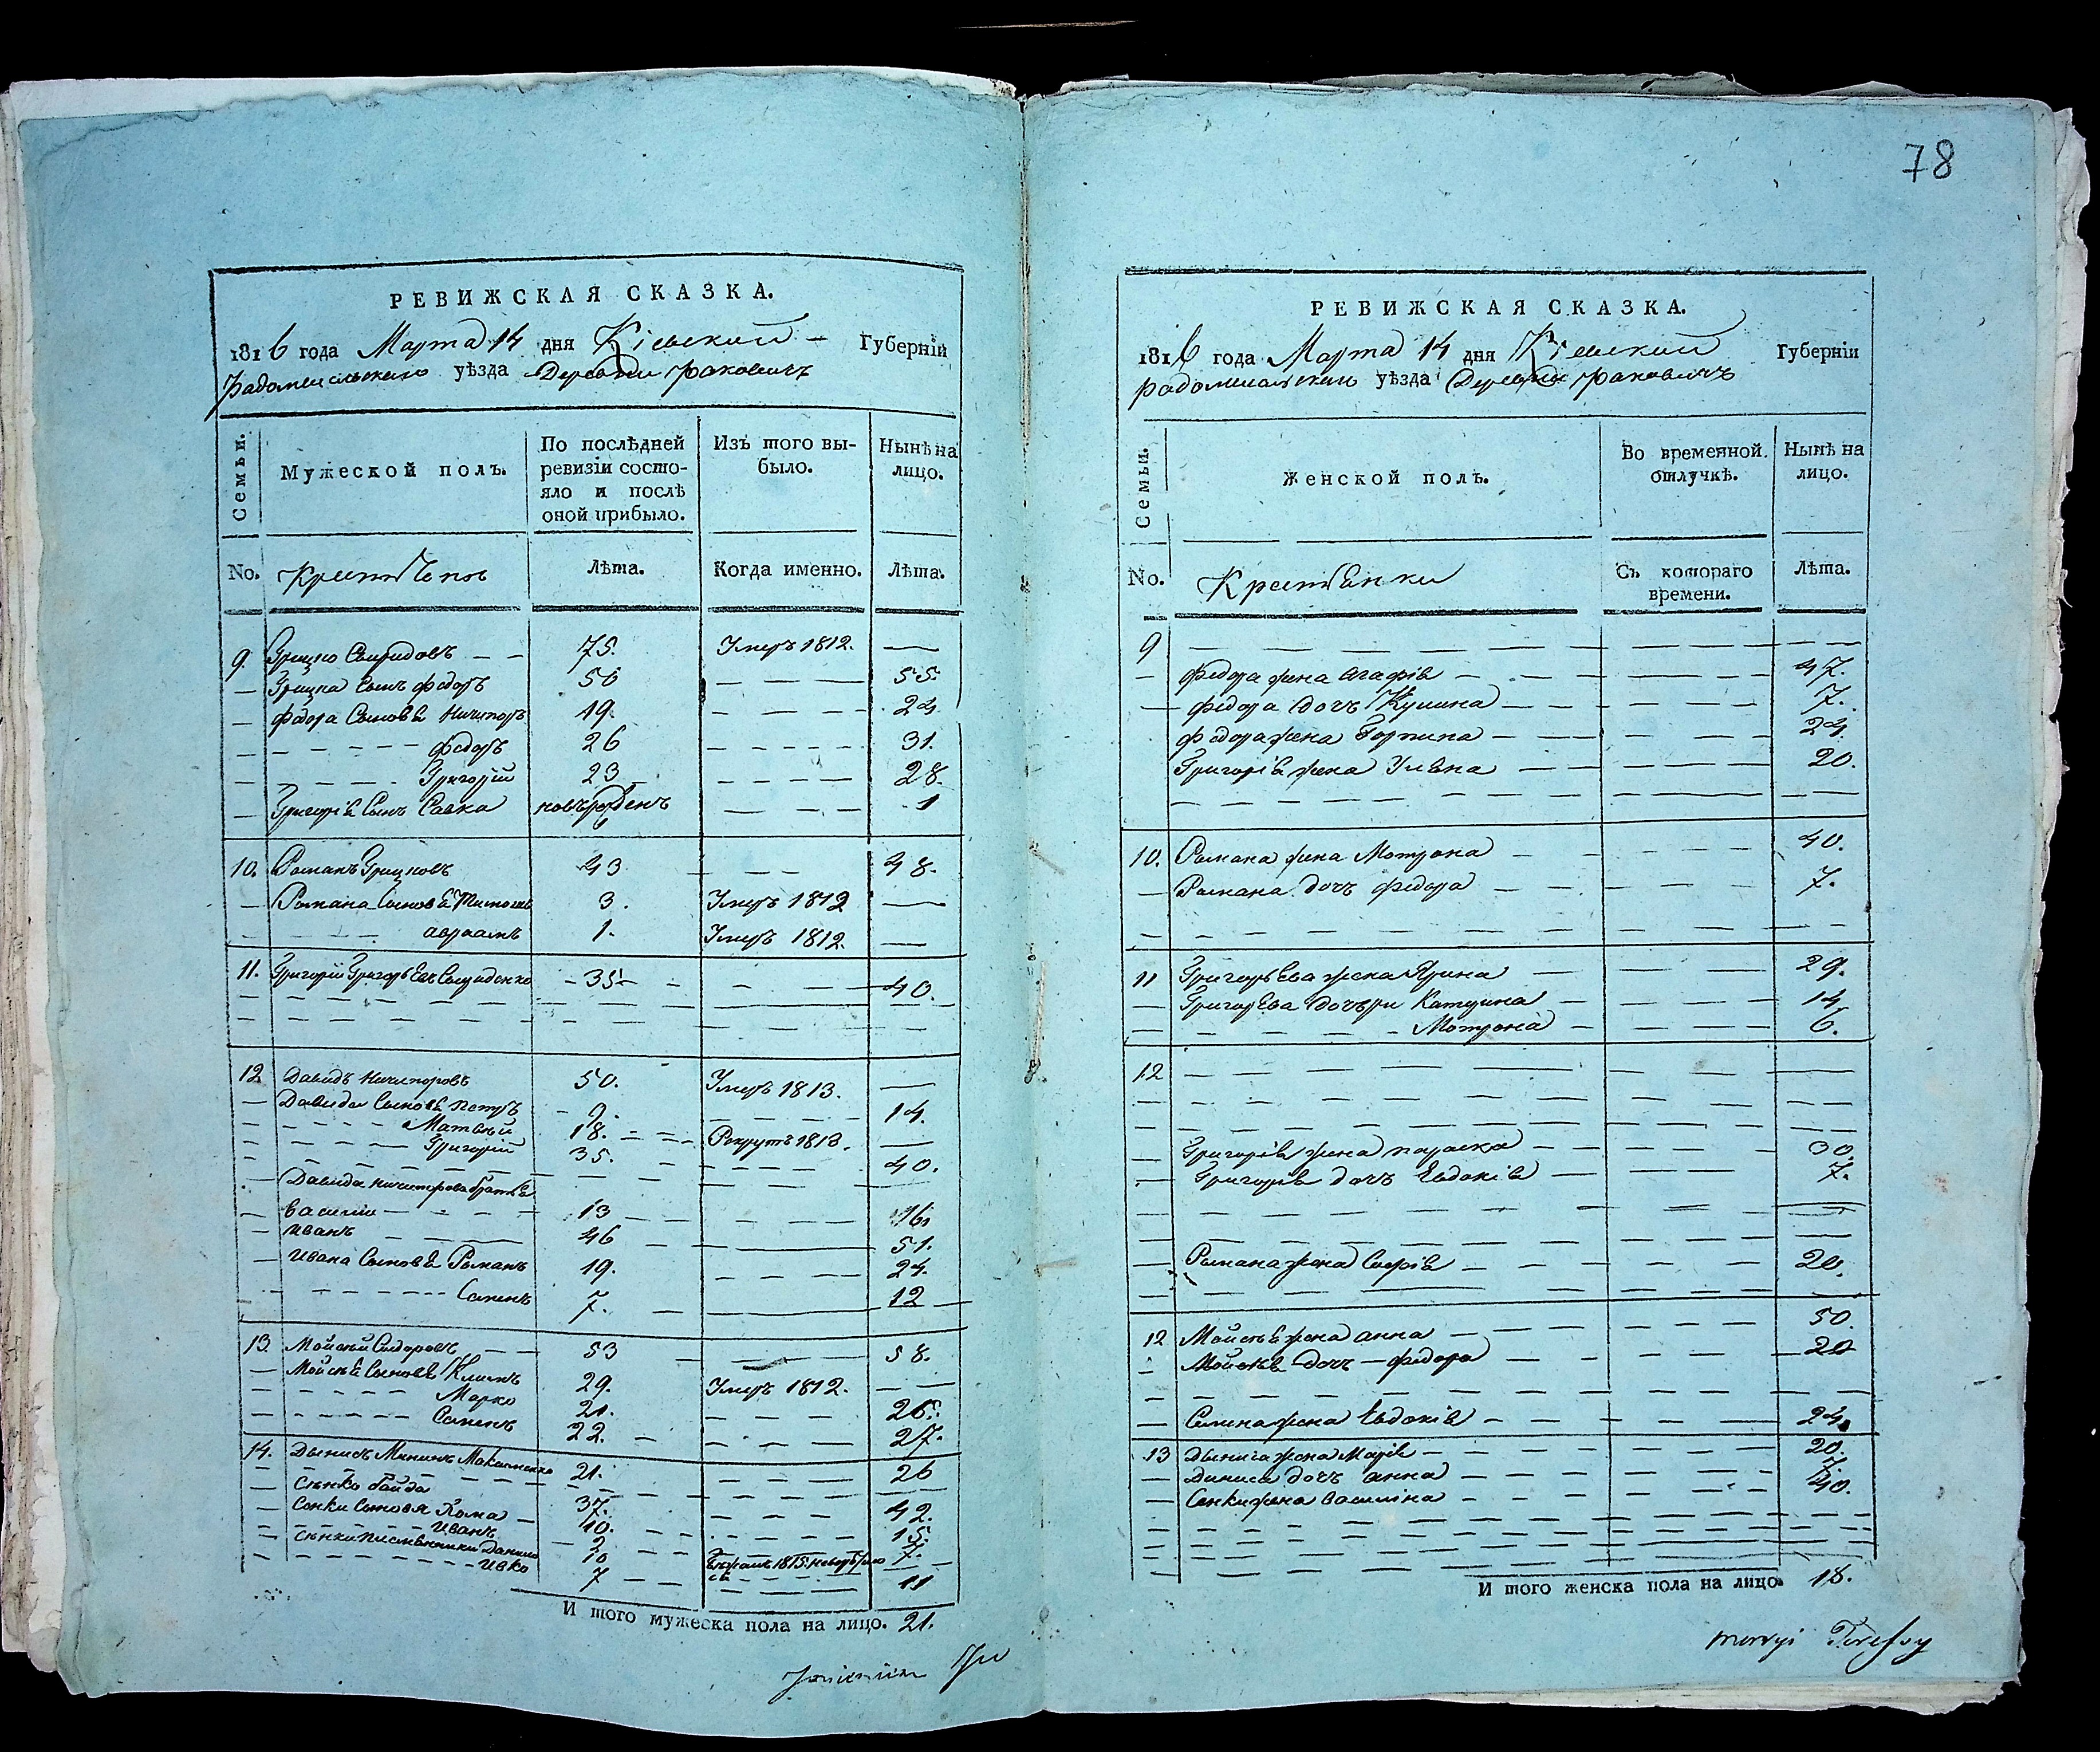 78
РЕВИЖСКАЯ СКАЗКА.
1816 года Марта 14 дня Кіевской Губерніи
Радомисльского уѣзда Деревни Раковичъ
Семьи.
Мужеской полъ.
По послѣдней ревизіи состо-
яло и послѣ оной прибыло.
Изъ того вы-
было.
Нынѣ на лицо.
No. Лѣта. Когда именно. Лѣта.
9. Грицко Свиридовъ — — 75. Умеръ 1812. —
— Грицка Сынъ Федоръ 50 — — — 55.
— Федора Сыновя Ничипоръ 19. — — — 24.
— — — — Федоръ 26 — — — 31.
— — — — Григорій 23 — — — 28.
— Григорія Сынъ Савка новърожденъ — — — 1
10. Романъ Грицковъ 43 — — 48.
— Романа Сыновя Тимошъ 3. Умеръ 1812 —
— — — авраамъ 1. Умеръ 1812. —
11. Григорій — 35 — — — 40.
12. Давидъ Ничипоровъ 50. Умеръ 1813. —
— Давида Сыновя Петръ — 9. — — — 14.
— — — — Матвѣй 18. — — Рекрутъ 1813. —
— — — — Григорій 35. — — — 40.
— Давида Ничипорова братья
— Василій — — — 13 — — — 16
— Иванъ 46 — — 51.
— Ивана Сыновя Романъ 19. — — — 24.
— — — — Семенъ 7. — — 12
13. Мойсѣй Сидоровъ 53 — — 58.
— Мойсѣя Сыновя Климъ 29. Умеръ 1812. — —
— — — — Марко 21. — — — 26.
— — — — Семенъ 22. — — — 27.
14. Денисъ Мининъ Максименко 21. — — — 26
— Сенько Гайда 37. — — — 42.
— Сенки Сыновя Хома — 10. — — — 15.
— — — — Иванъ — 2 — — 7.
— Сѣнки племѣнники Данило 10 бѣжалъ 1815
— — — — Ивко 7 — — — 11
И того мужеска пола на лицо. 21.
РЕВИЖСКАЯ СКАЗКА.
1816 года Марта 14 дня Кіевской Губерніи
Радомисльского уѣзда Деревни Раковичъ
Семьи.
Женской полъ.
Во временной отлучкѣ.
Нынѣ на лицо.
No. Крестьянки Съ котораго времени. Лѣта.
9 — — — — —
— Федора жена Агафія — — — 47.
— Федора дочъ Кулина — — — 7.
Федора жена Горпина — — — 24.
Григорія жена Уляна — — — 20.
10. Романа жена Мотрона — — — 40.
— Романа дочъ Федора — — — 7.
11 Григорьева жена Ярина — — — 29.
— Григорьева дочъри Катерина — — — 14
— — — — Мотрона — — — 6.
12 — — — — —
— Григорія жена Параска — — — 30.
— Григорія дочъ Евдокія — — — 7.
— Романа жена Софія — — — 20.
12 Мойсѣя жена анна — — — 50.
— Мойсѣя дочъ — Федора — — — 20
— Семена жена Евдокія — — — 24.
13 Дениса жена Марія — — — 20.
— Дениса дочъ анна — — —
— Сенки жена Василина — — — 40.
И того женска пола на лицо. 18.